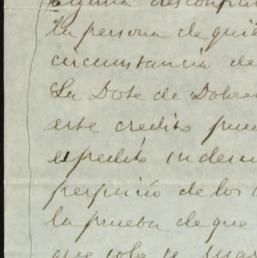 alguna desconfian
la persona de quie
circunstancia de
La Dote de Dolore
este credito pue
espedito indem
perjuicio de los
la prueba de que
que solo se